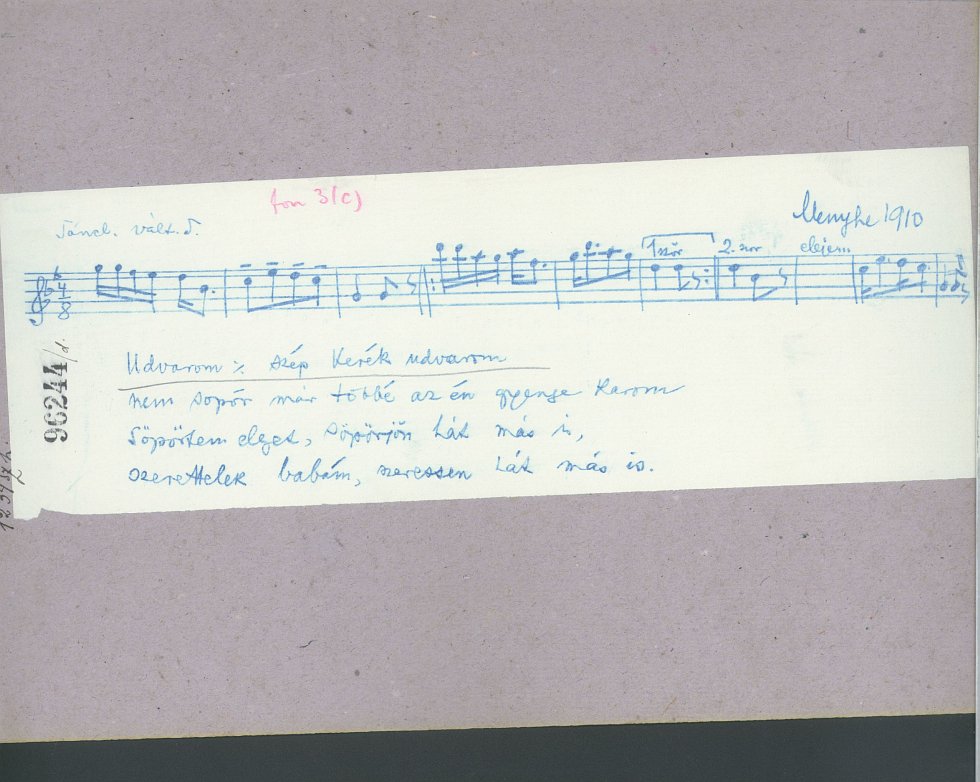 fon 3(c)
Táncl. vált. d.
Menyhe 1910
1ször
2. szor
elejem
4
8
96244/d.
Udvarom ٪ szép kerék udvarom
nem söpör már többé az én gyenge karom
Söpörtem eleget, söpörjön hát más is,
szerettelek babám, szeressen hát más is.